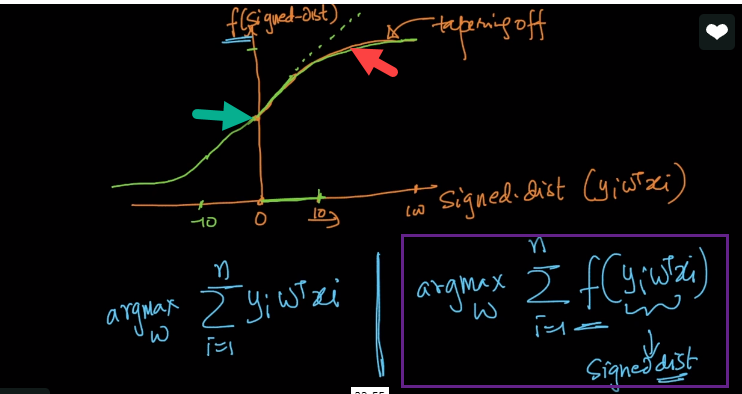 f(signed-dist)
tapering off
-10 0 10 100
signed-dist (yᵢwᵀxᵢ)
argmax w n Σ i=1 yᵢwᵀxᵢ
argmax w n Σ i=1 f(yᵢwᵀxᵢ)
signed dist